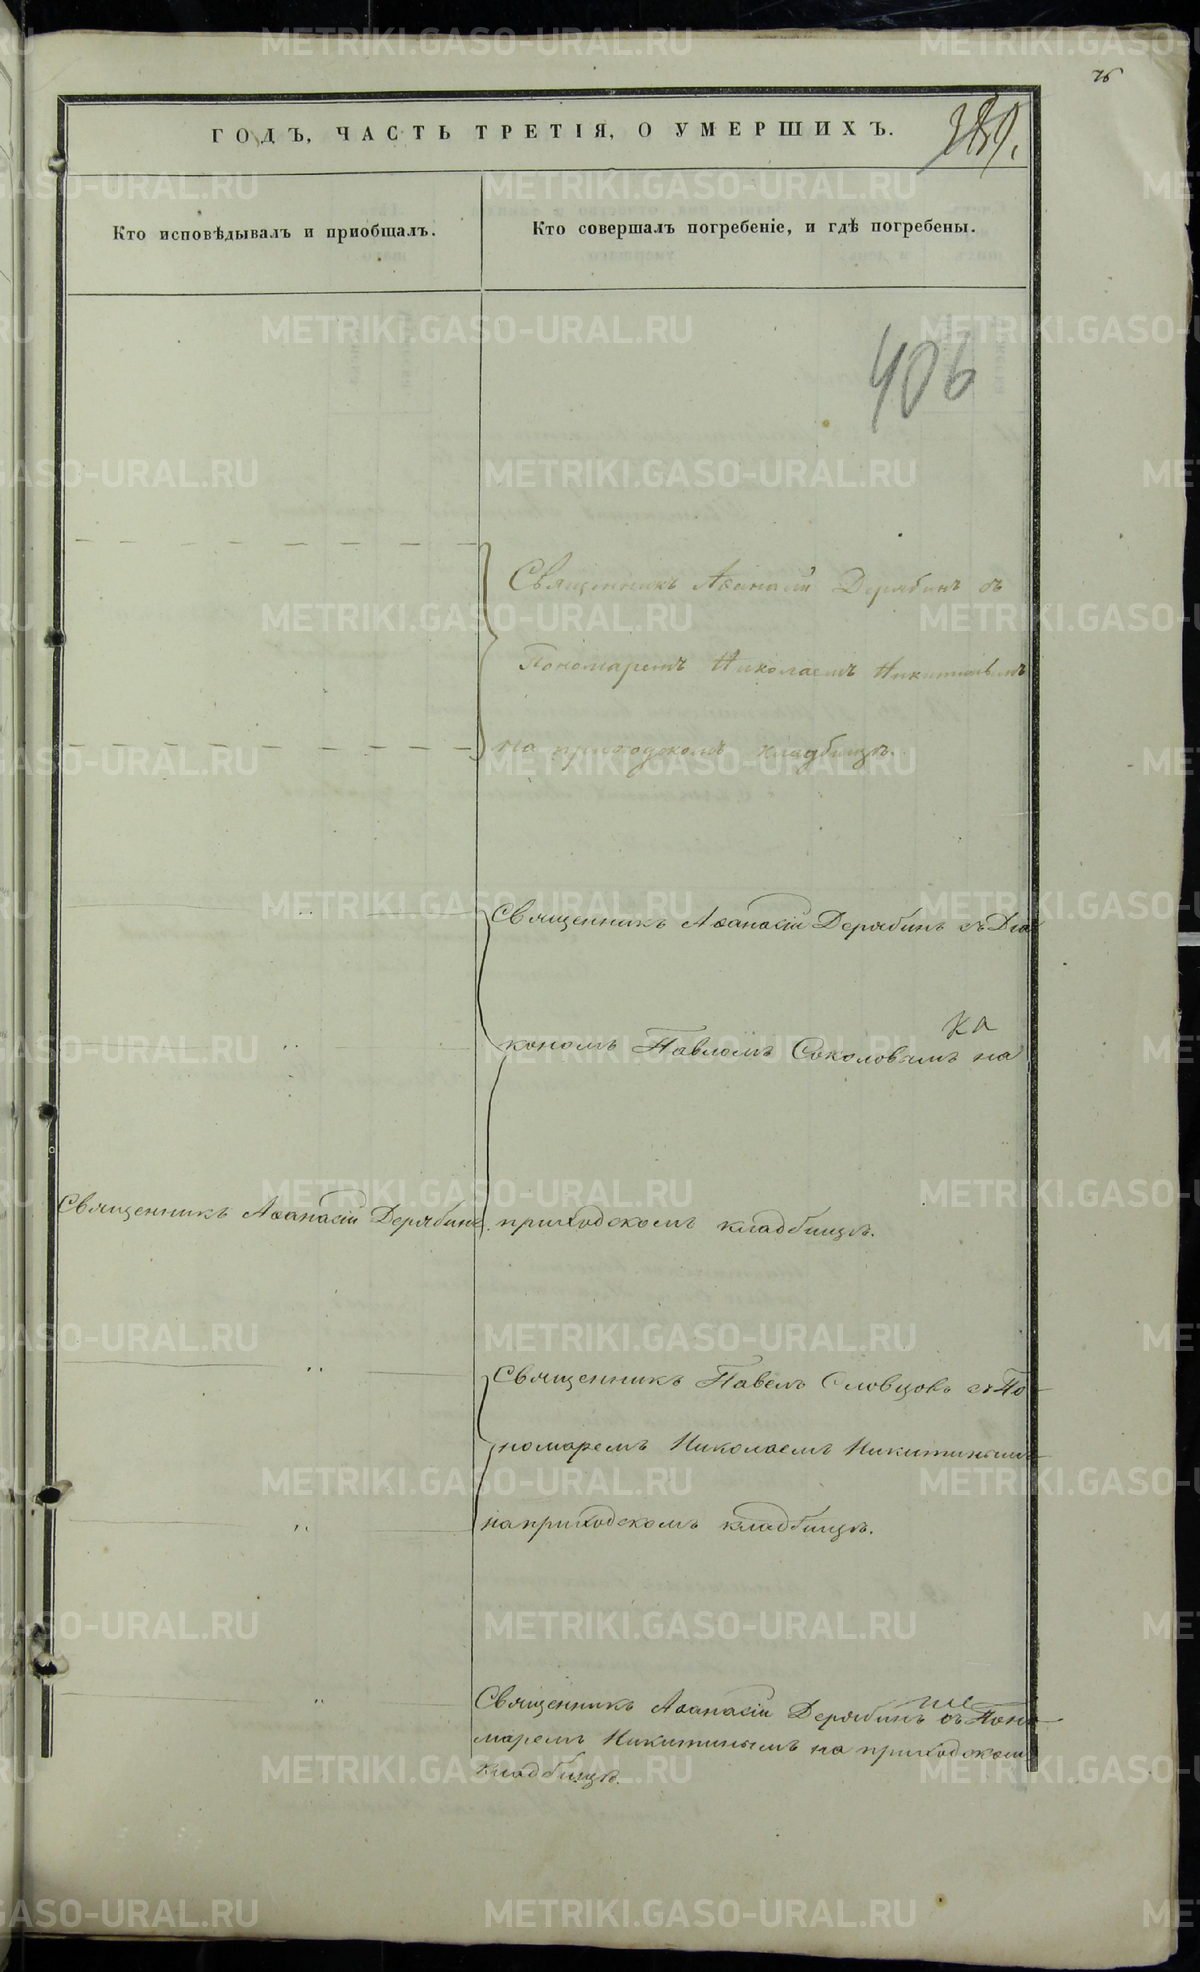 26
ГОДЪ, ЧАСТЬ ТРЕТІЯ, О УМЕРШИХЪ.
Кто исповѣдывалъ и пріобщалъ.
Кто совершалъ погребеніе, и гдѣ погребены.
406
Священникъ Аѳанасій Дерябинъ съ
Пономаремъ Николаемъ Никитинымъ
на приходскомъ кладбищѣ.
Священникъ Аѳанасій Дерябинъ съ Діа
ка
кономъ Павломъ Соколовымъ на
Священникъ Аѳанасій Дерябинъ
приходскомъ кладбищѣ.
Священникъ Павелъ Словцовъ съ По-
номаремъ Николаемъ Никитинымъ
на приходскомъ кладбищѣ.
Священникъ Аѳанасій Дерябинъ съ Поно
маремъ Никитинымъ на приходскомъ
кладбищѣ.
METRIKI.GASO-URAL.RU